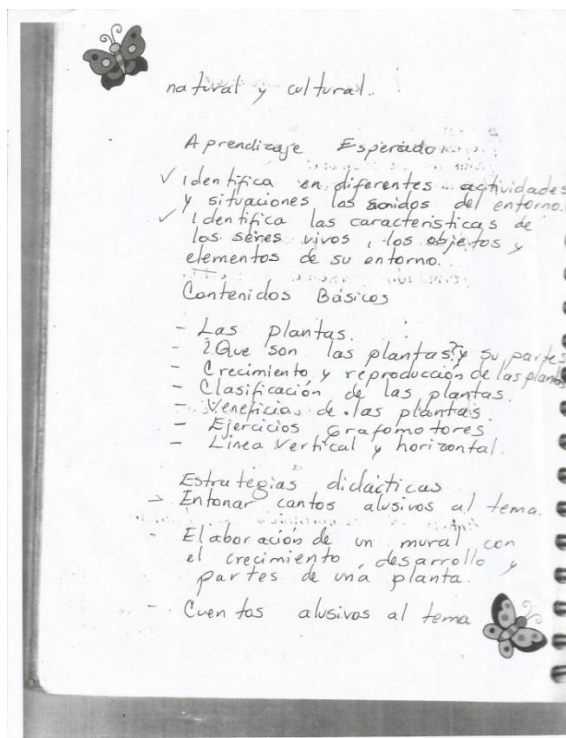 natural y cultural.
Aprendizaje Esperado
✓ Identifica en diferentes actividades
y situaciones los sonidos del entorno.
✓ Identifica las características de
los seres vivos, los objetos y
elementos de su entorno.
Contenidos Básicos
- Las plantas.
- ¿Que son las plantas? y su partes
- Crecimiento y reproducción de las plantas
- Clasificación de las plantas.
- Veneficias de las plantas.
- Ejercicios Grafomotores
- Linea Vertical y horizontal.
Estrategias didácticas
→ Entonar cantos alusivos al tema.
- Elaboración de un mural con
el crecimiento, desarrollo y
partes de una planta.
- Cuentos alusivos al tema